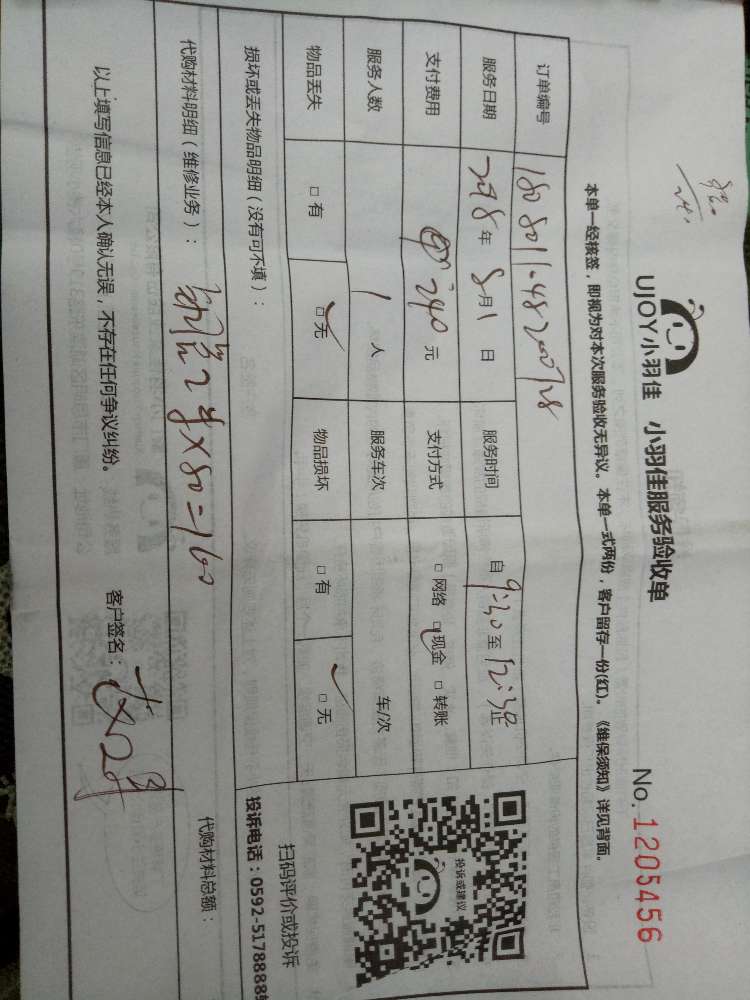 UJOY小羽佳 小羽佳服务验收单
No. 1205456
本单一经核签,即视为对本次服务验收无异议。本单一式两份,客户留存一份(红)。《维保须知》详见背面。
订单编号
服务日期 2018年8月1日 服务时间 自9:30至12:30止
支付费用 240元 支付方式 □网络 □现金 □转账
服务人数 1人 服务车次 车/次
物品丢失 □有 □无 物品损坏 □有 □无
损坏或丢失物品明细(没有可不填):
投诉或建议
扫码评价或投诉
投诉电话:0592-5178885
代购材料明细(维修业务): X80=160
代购材料总额:
以上填写信息已经本人确认无误,不存在任何争议纠纷。
客户签名: